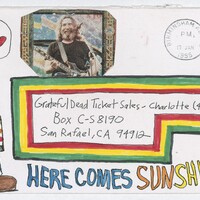 BIRMINGHAM
P M
17 JAN
1995
Grateful Dead Ticket Sales - Charlotte (4
Box C-S 8190
San Rafael, CA 94912
HERE COMES SUNSH